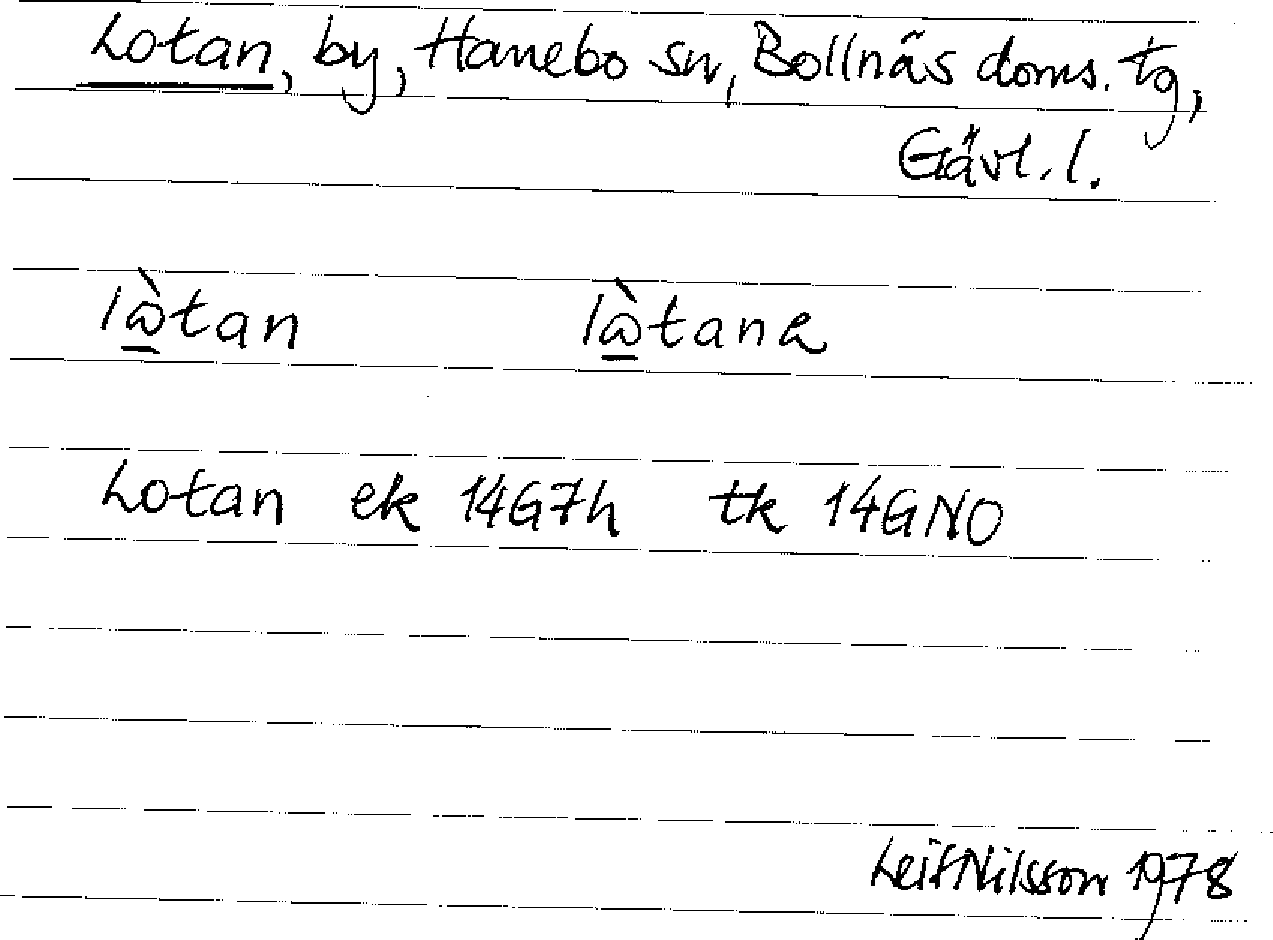 Lotan, by, Hanebo sn, Bollnäs doms. tg,
Gävl. l.
lὼ̱tan lὼ̱tanа
Lotan ek 14G7h tk 14GNO
Leif Nilsson 1978